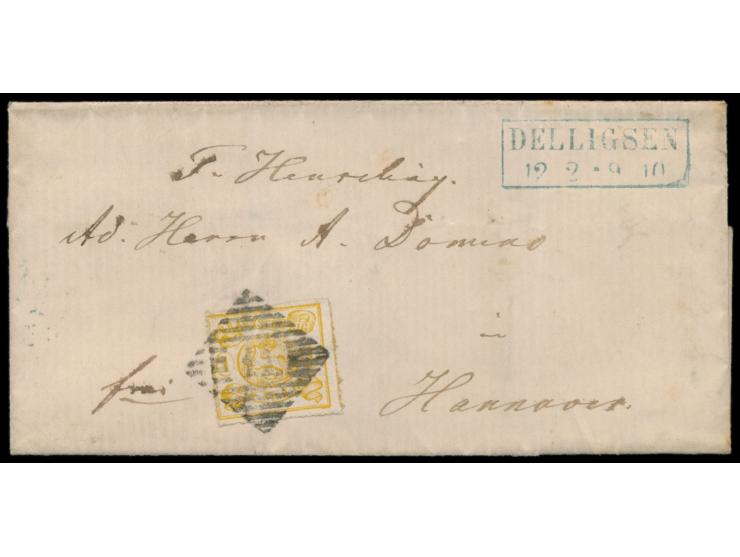 DELLIGSEN
12 2 • 9 10
Ad. Herrn A. Domino
in
frei
Hannover.